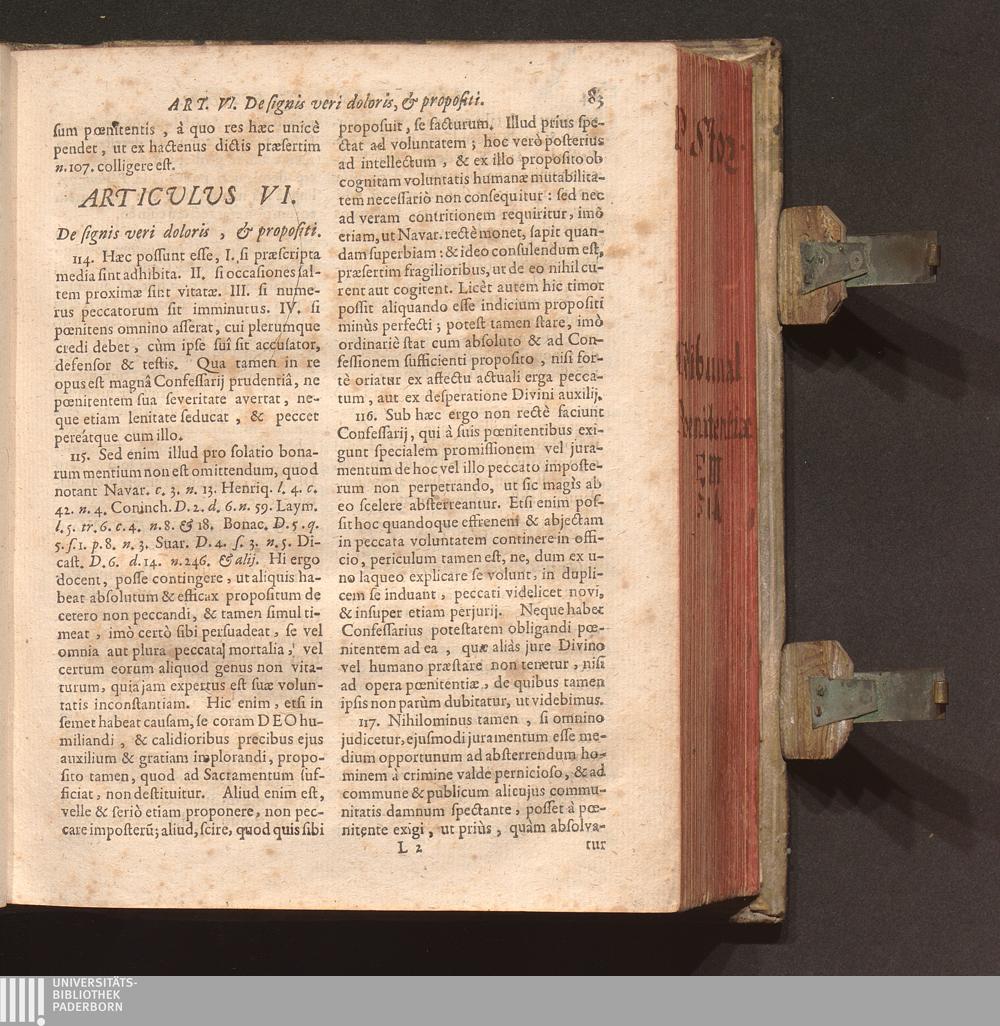 ART. VI. De ſignis veri doloris, & propoſiti. 83
ſum pœnitentis, à quo res hæc unicè
pendet, ut ex hactenus dictis præſertim
n. 107. colligere eſt.
ARTICULUS VI.
De ſignis veri doloris, & propoſiti.
114. Hæc poſſunt eſſe, I. ſi præſcripta
media ſint adhibita. II. ſi occaſiones ſal-
tem proximæ ſint vitatæ. III. ſi nume-
rus peccatorum ſit imminutus. IV. ſi
pœnitens omnino aſſerat, cui plerumque
credi debet, cùm ipſe ſuî ſit accuſator,
defenſor & teſtis. Qua tamen in re
opus eſt magnâ Confeſſarij prudentiâ, ne
pœnitentem ſua ſeveritate avertat, ne-
que etiam lenitate ſeducat, & peccet
pereátque cum illo.
115. Sed enim illud pro ſolatio bona-
rum mentium non eſt omittendum, quod
notant Navar. c. 3. n. 13. Henriq. l. 4. c.
42. n. 4. Coninch. D. 2. d. 6. n. 59. Laym.
l. 5. tr. 6. c. 4. n. 8. & 18. Bonac. D. 5. q.
5. ſ. 1. p. 8. n. 3. Suar. D. 4. ſ. 3. n. 5. Di-
caſt. D. 6. d. 14. n. 246. & alij. Hi ergo
docent, poſſe contingere, ut aliquis ha-
beat abſolutum & efficax propoſitum de
cetero non peccandi, & tamen ſimul ti-
meat, imò certò ſibi perſuadeat, ſe vel
omnia aut plura peccata mortalia, vel
certum eorum aliquod genus non vita-
turum, quia jam expertus eſt ſuæ volun-
tatis inconſtantiam. Hic enim, etſi in
ſemet habeat cauſam, ſe coram DEO hu-
miliandi, & calidioribus precibus ejus
auxilium & gratiam implorandi, propo-
ſito tamen, quod ad Sacramentum ſuf-
ficiat, non deſtituitur. Aliud enim eſt,
velle & ſeriò etiam proponere, non pec-
care impoſterũ; aliud, ſcire, quod quis ſibi
propoſuit, ſe facturum. Illud priùs ſpe-
ctat ad voluntatem; hoc verò poſterius
ad intellectum, & ex illo propoſito ob
cognitam voluntatis humanæ mutabilita-
tem neceſſariò non conſequitur: ſed nec
ad veram contritionem requiritur, imò
etiam, ut Navar. rectè monet, ſapit quan-
dam ſuperbiam: & ideo conſulendum eſt,
præſertim fragilioribus, ut de eo nihil cu-
rent aut cogitent. Licèt autem hic timor
poſſit aliquando eſſe indicium propoſiti
minùs perfecti; poteſt tamen ſtare, imò
ordinariè ſtat cum abſoluto & ad Con-
feſſionem ſufficienti propoſito, niſi for-
tè oriatur ex affectu actuali erga pecca-
tum, aut ex deſperatione Divini auxilij.
116. Sub hæc ergo non rectè faciunt
Confeſſarij, qui à ſuis pœnitentibus exi-
gunt ſpecialem promiſſionem vel jura-
mentum de hoc vel illo peccato impoſte-
rum non perpetrando, ut ſic magis ab
eo ſcelere abſterreantur. Etſi enim poſ-
ſit hoc quandoque effrenem & abjectam
in peccata voluntatem continere in offi-
cio, periculum tamen eſt, ne, dum ex u-
no laqueo explicare ſe volunt, in dupli-
cem ſe induant, peccati videlicet novi,
& inſuper etiam perjurij. Neque habet
Confeſſarius poteſtatem obligandi pœ-
nitentem ad ea, quæ aliàs jure Divino
vel humano præſtare non tenetur, niſi
ad opera pœnitentiæ, de quibus tamen
ipſis non parùm dubitatur, ut videbimus.
117. Nihilominus tamen, ſi omnino
judicetur, ejuſmodi juramentum eſſe me-
dium opportunum ad abſterrendum ho-
minem à crimine valde pernicioſo, & ad
commune & publicum alicujus commu-
nitatis damnum ſpectante, poſſet à pœ-
nitente exigi, ut priùs, quàm abſolva-
L 2 tur
P. Stoz
Tribunal
Pœnitentiæ
UNIVERSITÄTS-
BIBLIOTHEK
PADERBORN